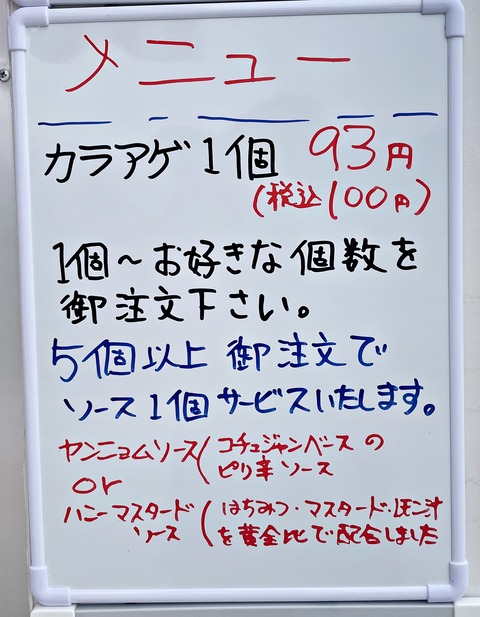 メニュー
カラアゲ1個 93円
(税込100円)
1個～お好きな個数を
御注文下さい。
5個以上 御注文で
ソース1個サービスいたします。
ヤンニョムソース(コチュジャンベースの
ピリ辛ソース
or
ハニーマスタード(はちみつ・マスタード・レモン汁
ソース を黄金比で配合しました